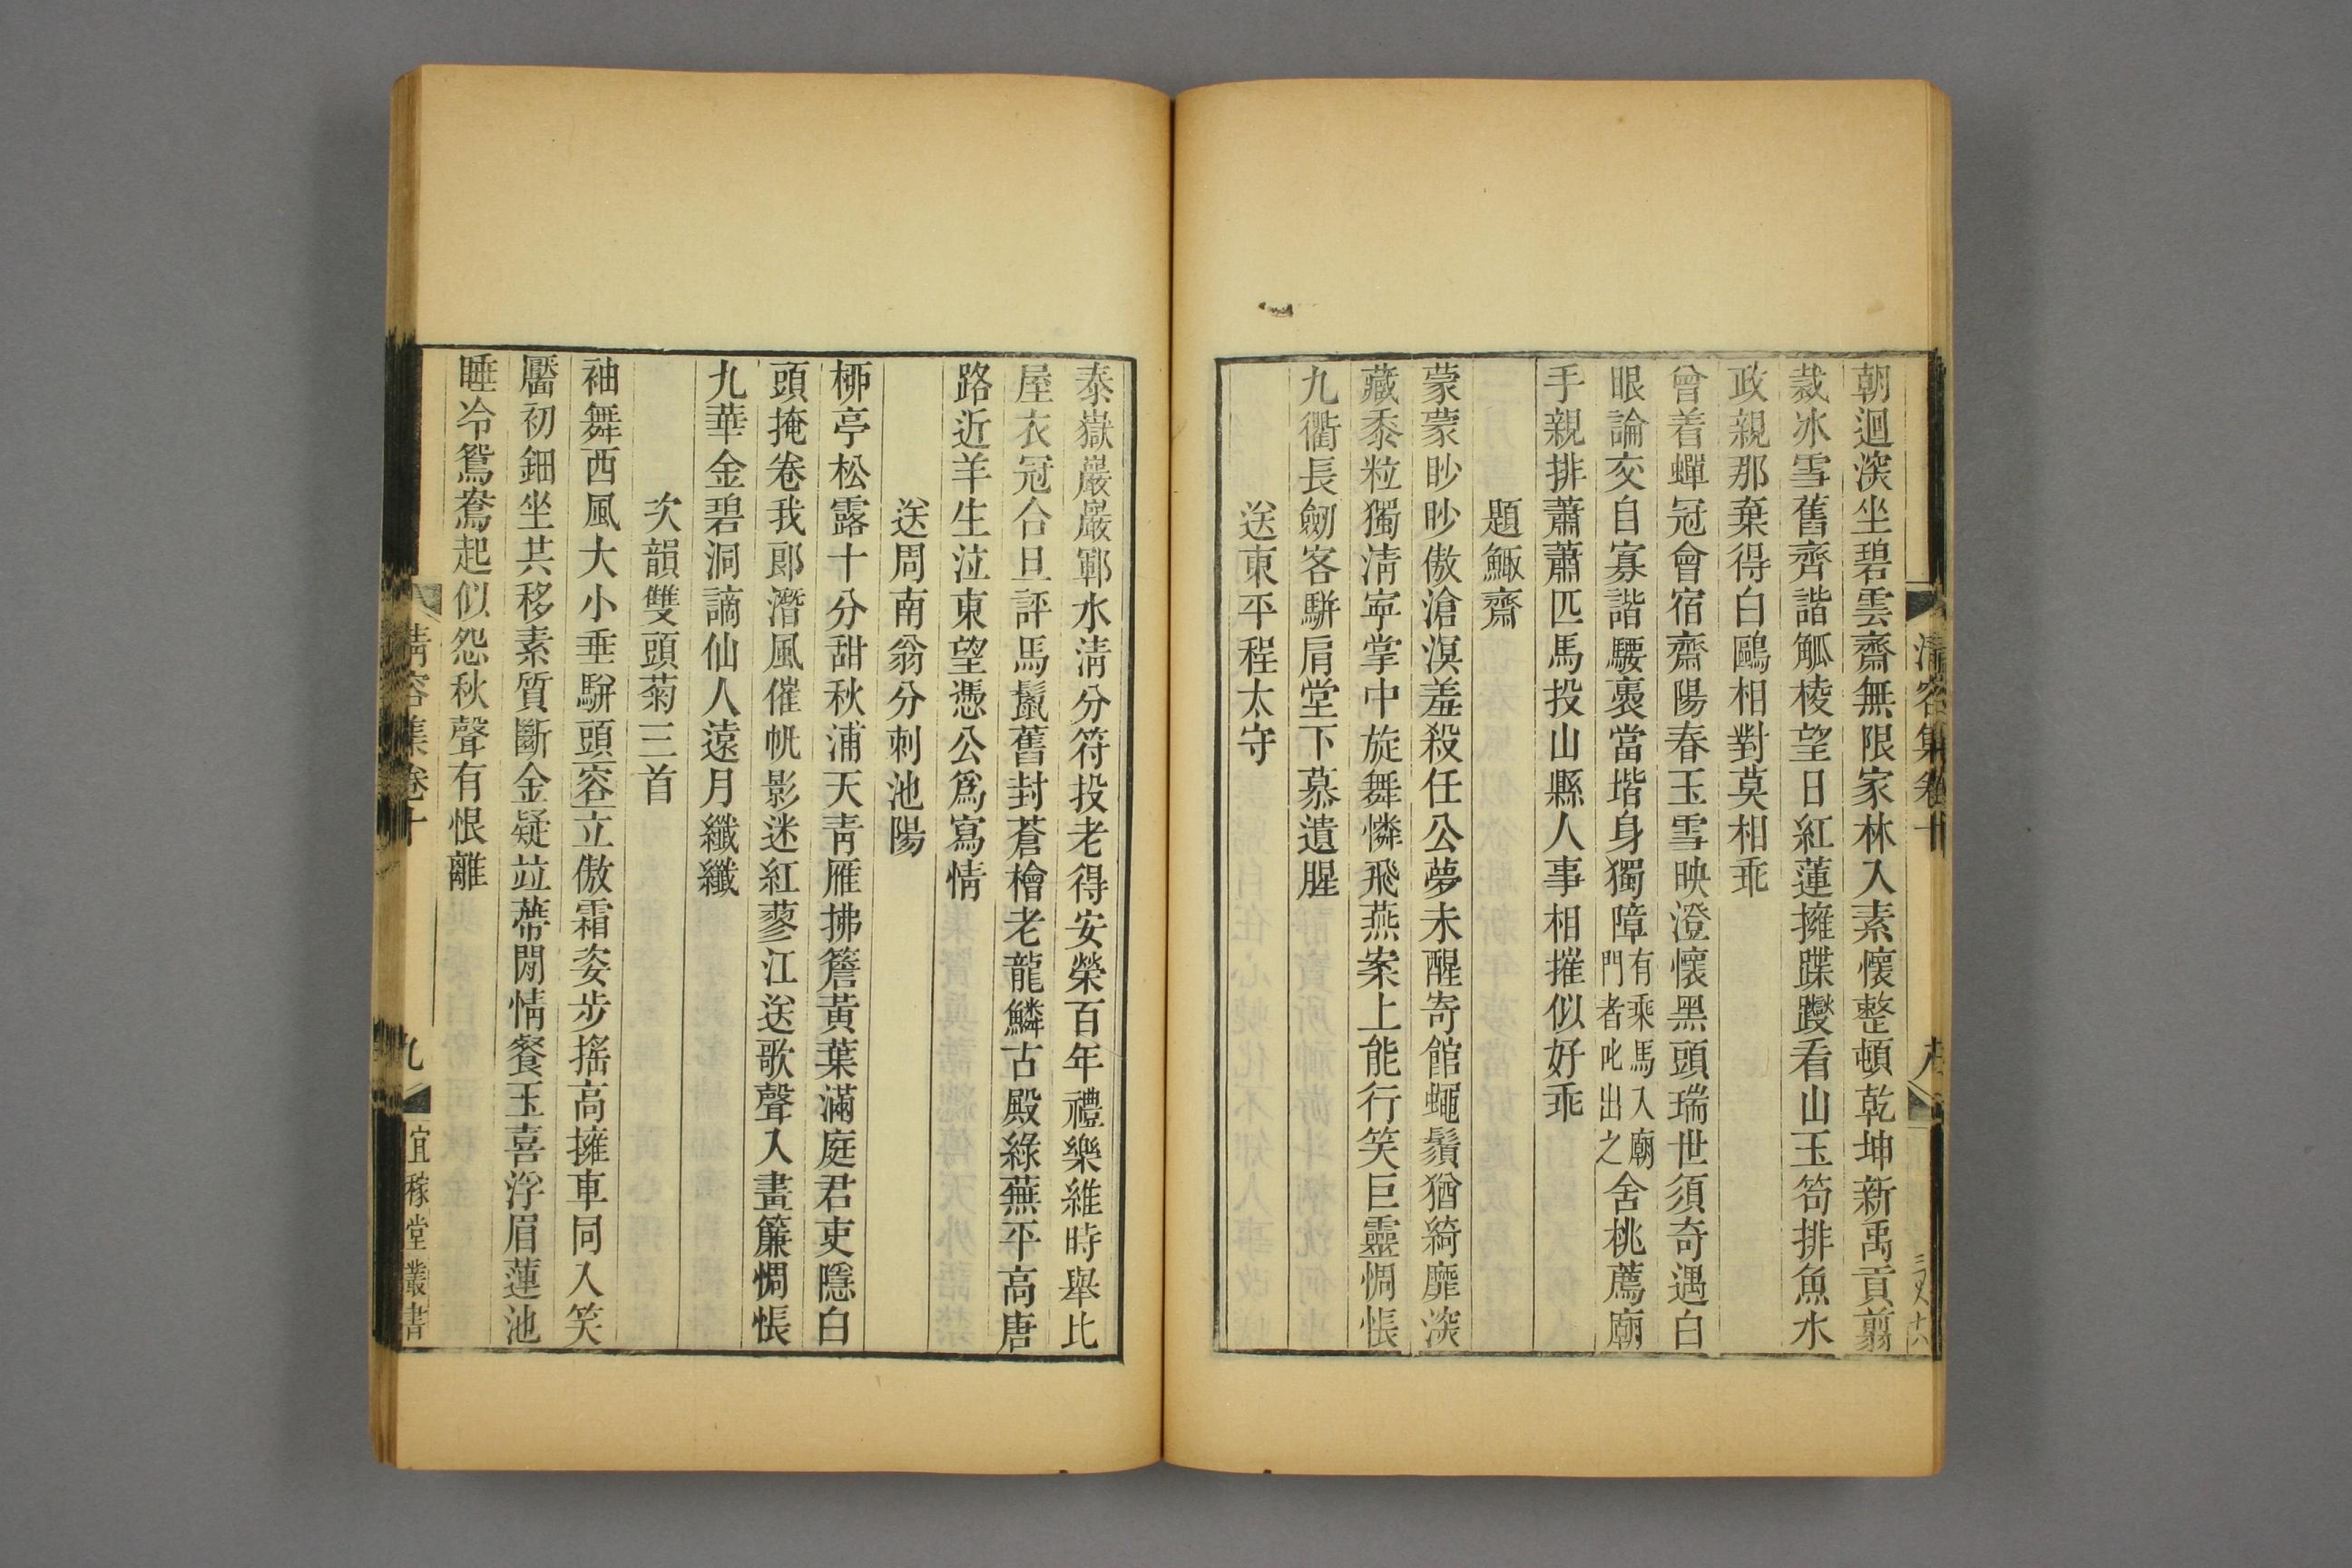 清容集卷十
朝迴深坐碧雲齋無限家林入素懷整頓乾坤新禹貢翦
裁冰雪舊齊諧觚棱望日紅蓮擁蹀躞看山玉笏排魚水
政親那棄得白鷗相對莫相乖
曾着蟬冠會宿齋陽春玉雪映澄懷黑頭瑞世須奇遇白
眼論交自寡諧騕褭當堦身獨障有乘馬入廟門者叱出之舍桃薦廟
手親排蕭蕭匹馬投山縣人事相摧似好乖
題鯫齋
蒙蒙眇眇傲滄溟羞殺任公夢未醒寄館蠅鬚猶綺靡深
藏黍粒獨淸寍掌中旋舞憐飛燕案上能行笑巨靈惆悵
九衢長劒客駢肩堂下慕遺腥
送東平程太守
泰嶽巖巖鄆水淸分符投老得安榮百年禮樂維時舉比
屋衣冠合旦評馬鬣舊封蒼檜老龍鱗古殿綠蕪平高唐
路近羊生泣東望憑公爲寫情
送周南翁分刺池陽
栁亭松露十分甜秋浦天靑雁拂簷黃葉滿庭君吏隱白
頭掩卷我郎潛風催帆影迷紅蓼江送歌聲入畫簾惆悵
九華金碧洞謫仙人遠月纖纖
次韻雙頭菊三首
袖舞西風大小垂駢頭容立傲霜姿步搖高擁車同入笑
靨初鈿坐共移素質斷金疑竝蔕閒情餐玉喜浮眉蓮池
睡冷鴛鴦起似怨秋聲有恨離
清容集卷十
九
宜稼堂叢書